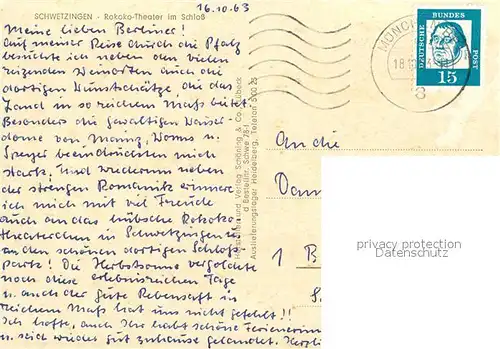 16.10.63
SCHWETZINGEN - Rokoko-Theater im Schloß
Meine lieben Berliner!
Auf meiner Reise durch die Pfalz
besuchte ich neben den vielen
reizenden Weinorten auch die
dortigen Kunstschätze, die das
Land in so reichem Maß bietet.
Besonders die gewaltigen Kaiser-
dome von Mainz, Worms u.
Speyer beeindruckten mich
stark. Und wiederum neben
der strengen Romanik erinnere
ich mich mit viel Freude
auch an das hübsche Rokoko-
theaterchen in Schwetzingen
an den schönen dortigen Schloß-
park! Die Herbstsonne vergoldete
noch diese erlebnisreichen Tage
u. auch der gute Rebensaft in
reichem Maß hat uns nicht gefehlt!!
Ich hoffe, auch Ihr habt schöne
u. seid wieder gut zuhause gelandet. Herzli
Verlag Schöning & Co., Lübeck
Bestellnr. Schwe 78
Auslieferungslager Heidelberg, Telefon
MÜNCH
18.10.
8
DEUTSCHE BUNDESPOST
15
An die
Dam
1 B
privacy protection
Datenschutz